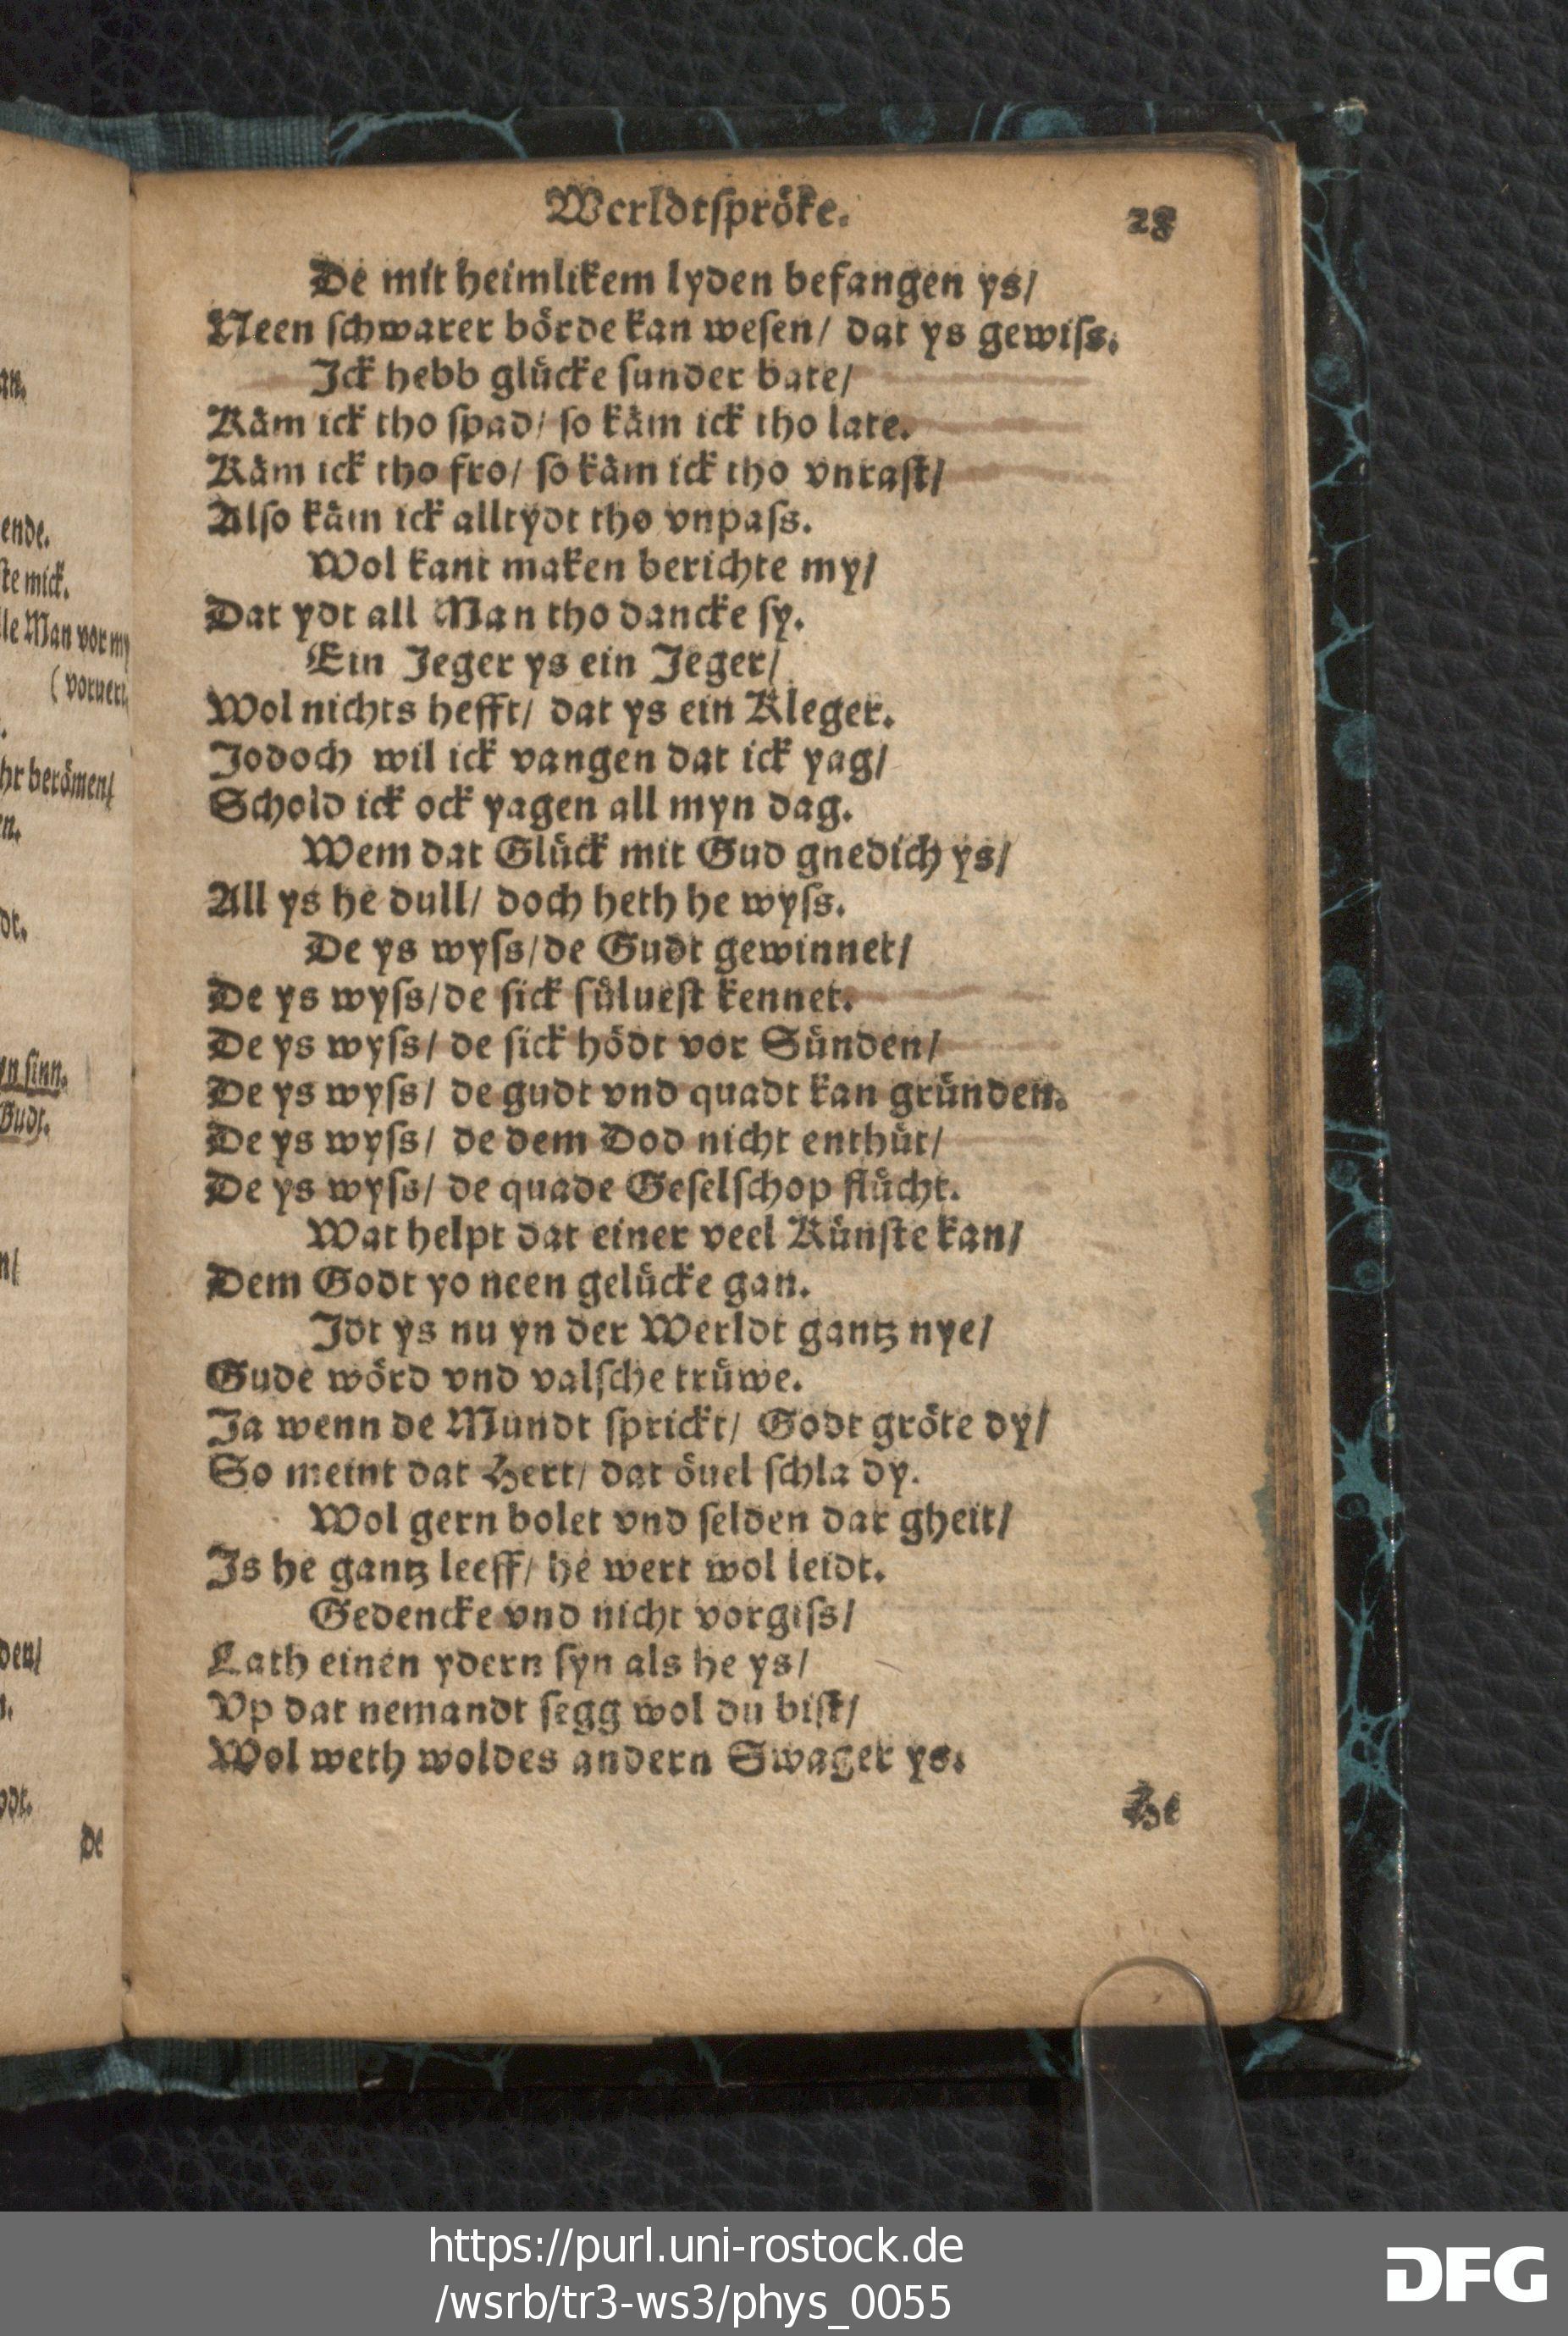 Werldtspröke. 28
De mit heimlikem lyden befangen ys/
Neen schwarer börde kan wesen/ dat ys gewiss.
Ick hebb glücke sunder bate/
Käm ick tho spad/ so käm ick tho late.
Käm ick tho fro/ so käm ick tho vnrast/
Also käm ick alltydt tho vnpass.
Wol kant maken berichte my/
Dat ydt all Man tho dancke sy.
Ein Jeger ys ein Jeger/
Wol nichts hefft/ dat ys ein Kleger.
Jodoch wil ick vangen dat ick yag/
Schold ick ock yagen all myn dag.
Wem dat Glück mit Gud gnedich ys/
All ys he dull/ doch heth he wyss.
De ys wyss/de Gudt gewinnet/
De ys wyss/de sick süluest kennet.
De ys wyss/ de sick hödt vor Sünden/
De ys wyss/ de gudt vnd quadt kan gründen.
De ys wyss/ de dem Dod nicht enthüt/
De ys wyss/ de quade Geselschop flücht.
Wat helpt dat einer veel Künste kan/
Dem Godt yo neen gelücke gan.
Idt ys nu yn der Werldt gantz nye/
Gude wörd vnd valsche trüwe.
Ja wenn de Mundt sprickt/ Godt gröte dy/
So meint dat Hert/ dat öuel schla dy.
Wol gern bolet vnd selden dar gheit/
Is he gantz leeff/ he wert wol leidt.
Gedencke vnd nicht vorgiss/
Lath einen ydern syn als he ys/
Vp dat nemandt segg wol du bist/
Wol weth woldes andern Swager ys.
He
an.
ende.
ste mick.
lle Man vor my
( voruert,
hr berömen/
en.
dt.
yn sinn.
Gudt.
n/
den/
De
https://purl.uni-rostock.de
/wsrb/tr3-ws3/phys_0055
DFG